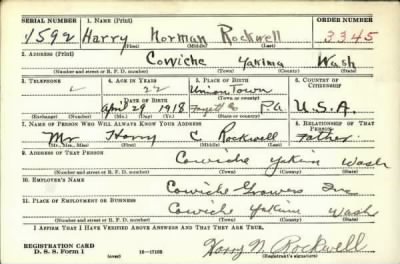 SERIAL NUMBER 1. NAME (Print) ORDER NUMBER
1592 Harry Norman Rockwell 3345
(First) (Middle) (Last)
2. ADDRESS (Print)
Cowiche Yakima Wash
(Number and street or R. F. D. number) (Town) (County) (State)
3. TELEPHONE 4. AGE IN YEARS 5. PLACE OF BIRTH 6. COUNTRY OF CITIZENSHIP
22 Union Town
DATE OF BIRTH (Town or county)
April 29 1918 Pa. U.S.A.
(Exchange) (Number) (Mo.) (Day) (Yr.) (State or country)
7. NAME OF PERSON WHO WILL ALWAYS KNOW YOUR ADDRESS 8. RELATIONSHIP OF THAT PERSON
Mr Harry C Rockwell Father
(Mr., Mrs., Miss) (First) (Middle) (Last)
9. ADDRESS OF THAT PERSON
Cowiche Yakim Wash
(Number and street or R. F. D. number) (Town) (County) (State)
10. EMPLOYER'S NAME
Cowiche Growers Inc
11. PLACE OF EMPLOYMENT OR BUSINESS
Cowiche Yakima Wash
(Number and street or R. F. D. number) (Town) (County) (State)
I AFFIRM THAT I HAVE VERIFIED ABOVE ANSWERS AND THAT THEY ARE TRUE.
REGISTRATION CARD
D. S. S. FORM 1 (over) 16—17105 Harry N. Rockwell
(Registrant's signature)